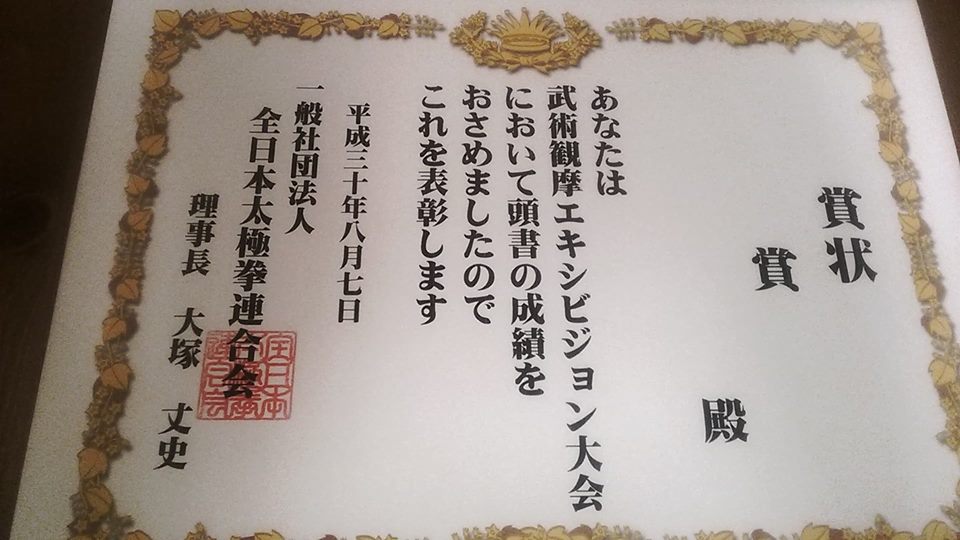 賞状
賞
殿
あなたは
武術観摩エキシビジョン大会
において頭書の成績を
おさめましたので
これを表彰します
平成三十年八月七日
一般社団法人
全日本太極拳連合会
理事長 大塚 丈史